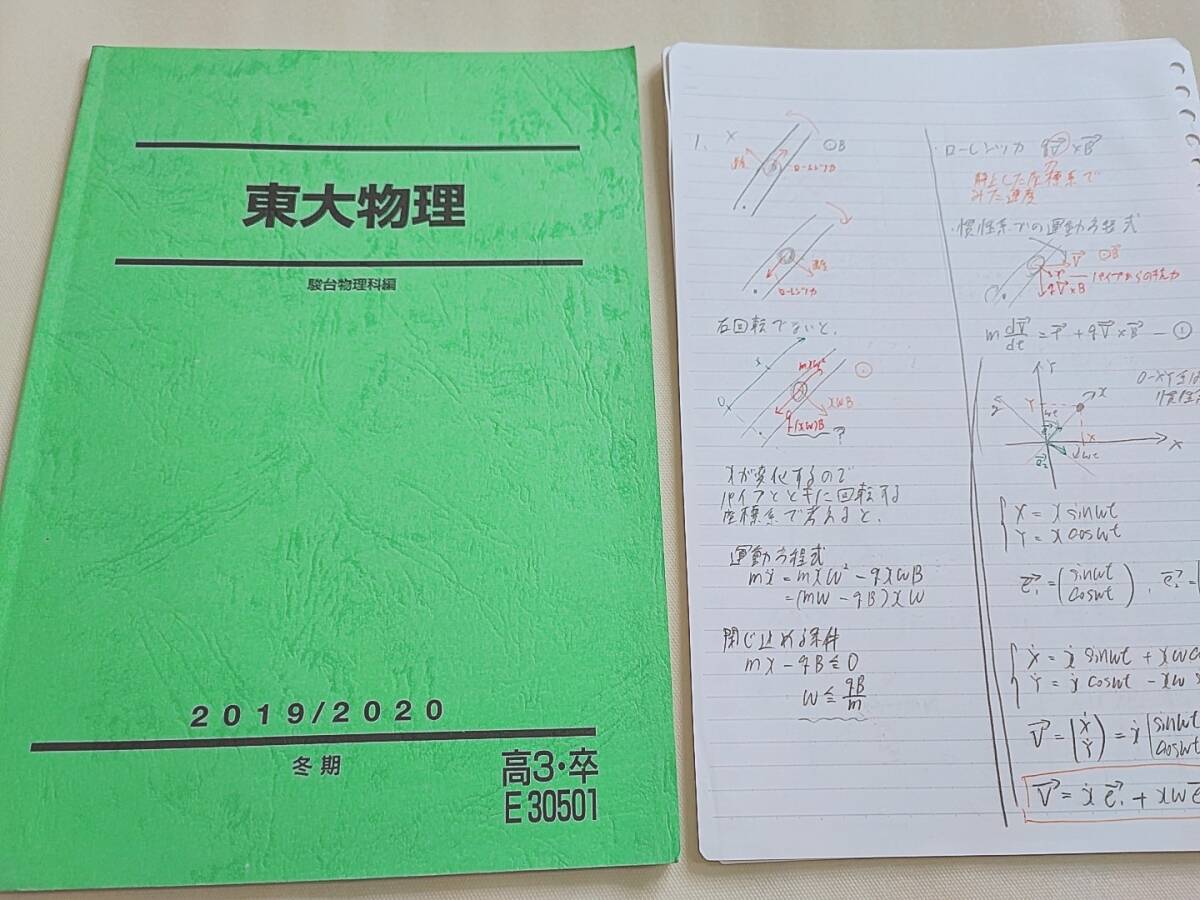 東大物理
駿台物理科編
2019/2020
冬期
高3・卒
E30501
1.
X
⊙B
慣性
ローレンツ力
慣性
ローレンツ力
右回転でないと、
x
0
mxω²
xωB
q(xω)B
?
xが変化するので
パイプとともに回転する
座標系で考えると、
運動方程式
mẍ = mxω² - qxωB
= (mω - qB)xω
閉じ込める条件
mx - qB ≦ 0
ω ≦ qB/m
・ローレンツ力 qV×B
静止した座標系で
みた速度
・慣性系での運動方程式
V
⊙B
パイプからの抗力
qV×B
m dV/dt = r + qV×B - ①
Y
O-XY系は
慣性
x
Y
ωt
X
X
e₂
ωt
{ X = x sinωt
Y = x cosωt
e₁ = (sinωt
cosωt), e₂ =
{ Ẋ = ẋ sinωt + xω
Ẏ = ẋ cosωt - xω
V = (Ẋ
Ẏ) = ẋ (sinωt
cosωt
V = ẋ e₁ + xω e